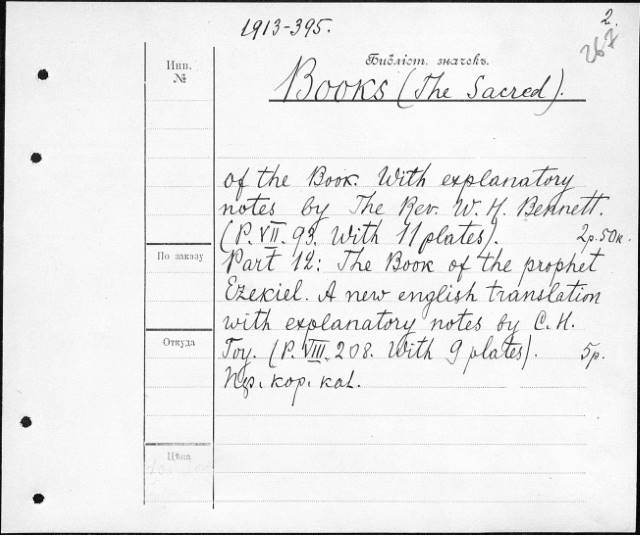 2.
1913-395.
267
Инв.
№
Библіот. значекъ.
Books (The Sacred).
of the Book. With explanatory
notes by The Rev. W. H. Bennett.
(P. VII. 93. With 11 plates). 2р.50к.
По заказу
Part 12: The Book of the prophet
Ezekiel. A new english translation
with explanatory notes by C. H.
Откуда
Toy. (P. VIII. 208. With 9 plates). 5р.
кор. кал.
Цѣна